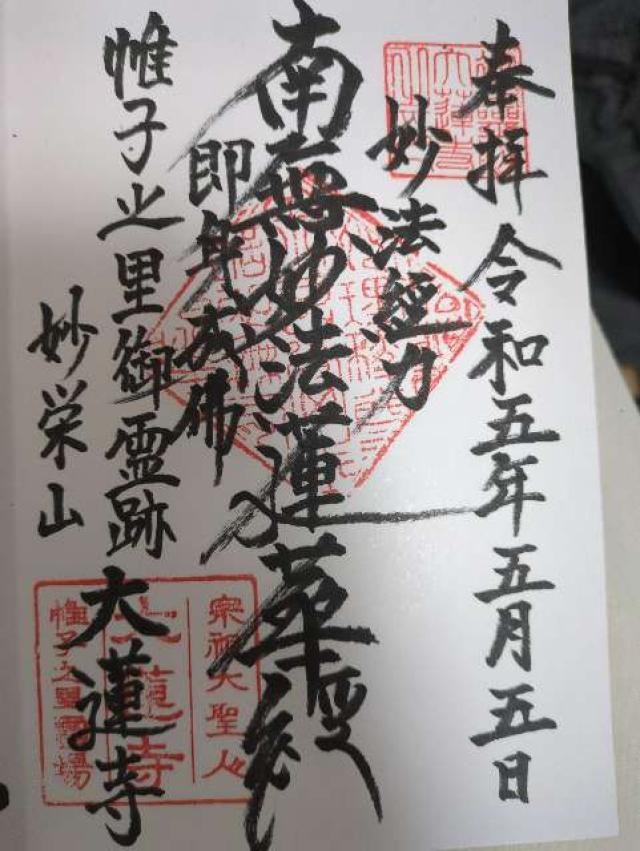 奉拝 令和五年五月五日
妙法經力
南無妙法蓮華経
即身成佛
帷子之里御霊跡
妙栄山
大蓮寺
宗祖大聖人
大蓮寺
帷子之里霊場